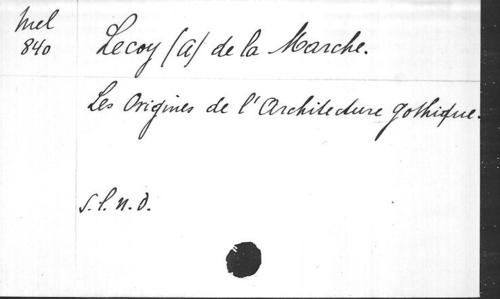 Mel
840
Lecoy (A) de la Marche.
Les Origines de l'Architecture gothique.
S. l. n. d.